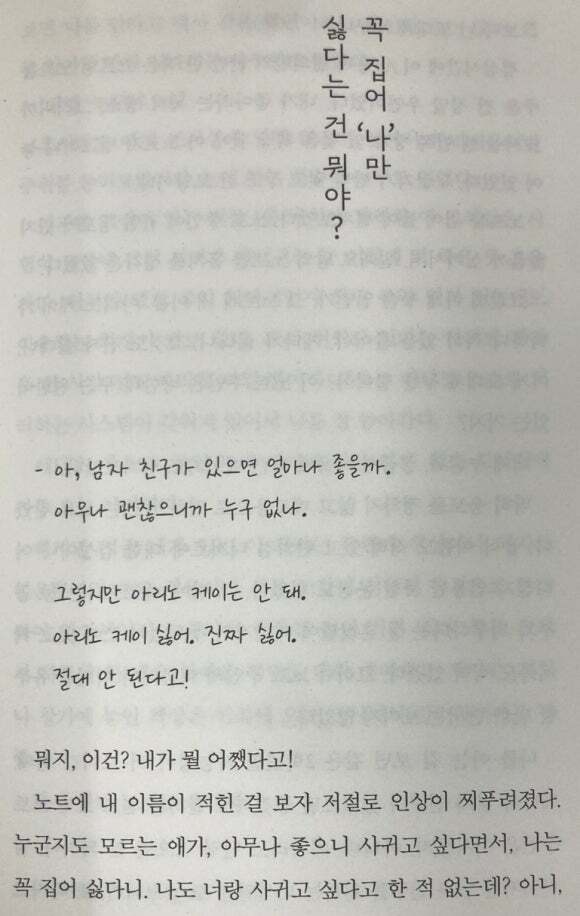 꼭 집어 ‘나’만
싫다는 건 뭐야?
- 아, 남자 친구가 있으면 얼마나 좋을까.
아무나 괜찮으니까 누구 없나.
그렇지만 아리노 케이는 안 돼.
아리노 케이 싫어. 진짜 싫어.
절대 안 된다고!
뭐지, 이건? 내가 뭘 어쨌다고!
노트에 내 이름이 적힌 걸 보자 저절로 인상이 찌푸려졌다.
누군지도 모르는 애가, 아무나 좋으니 사귀고 싶다면서, 나는
꼭 집어 싫다니. 나도 너랑 사귀고 싶다고 한 적 없는데? 아니,